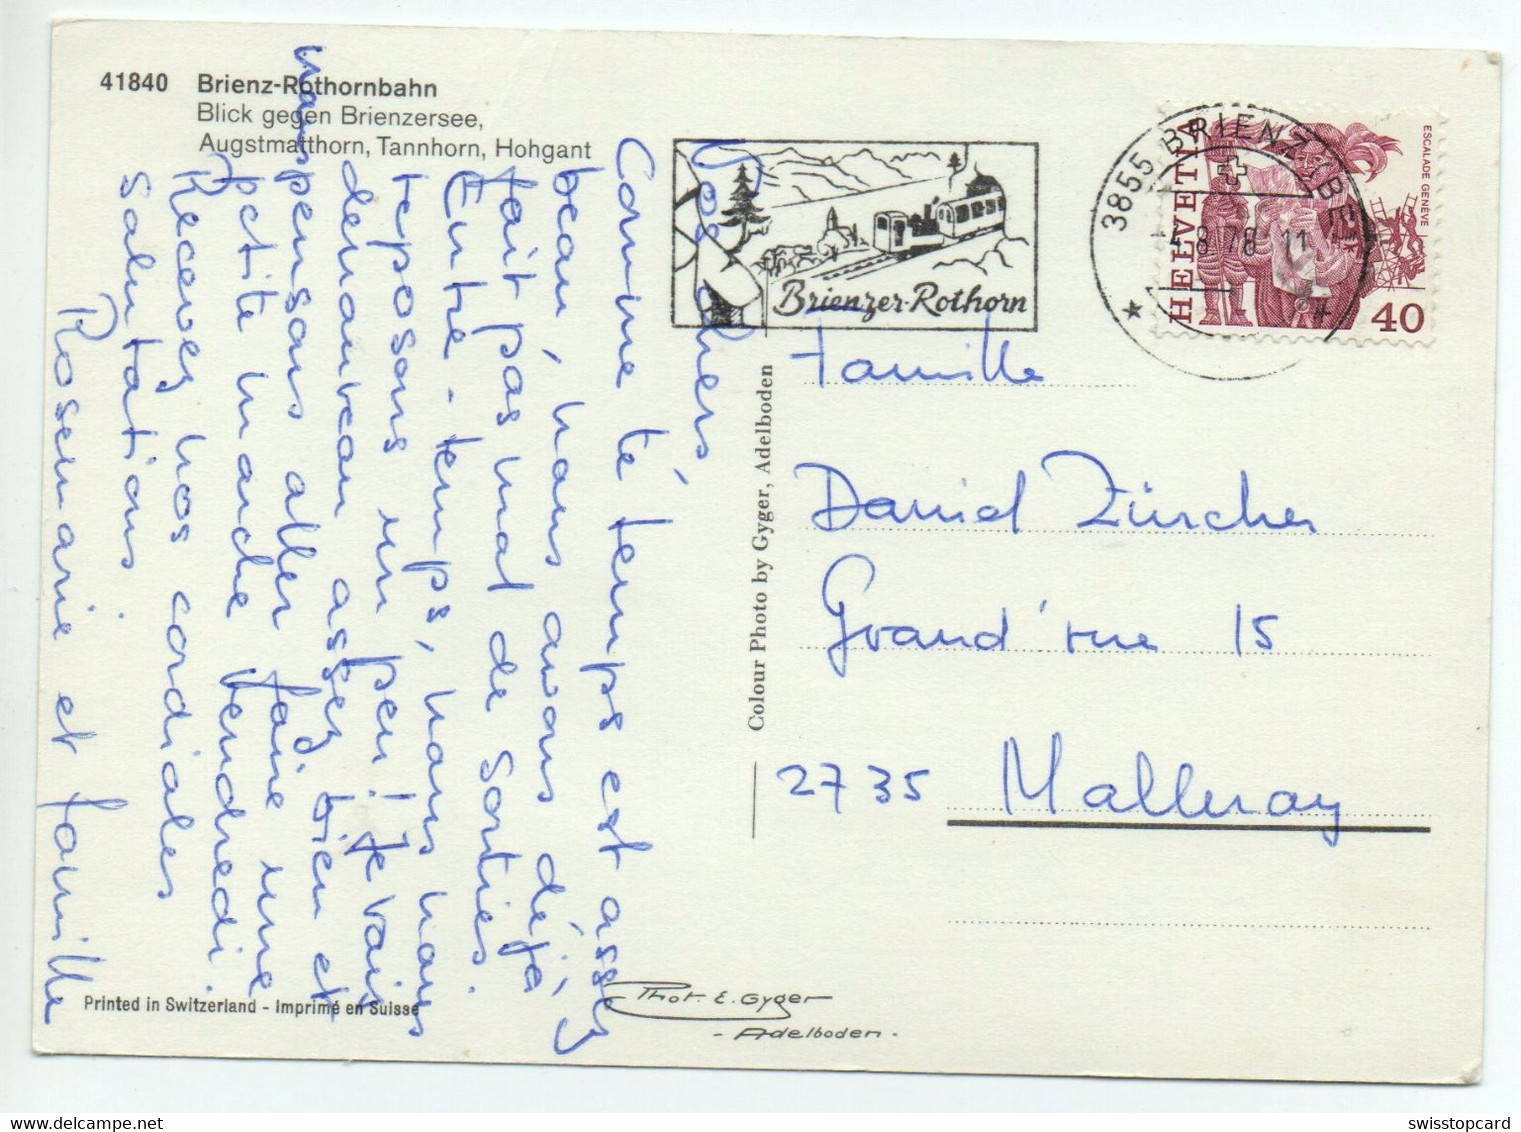 41840 Brienz-Rothornbahn
Blick gegen Brienzersee,
Augstmatthorn, Tannhorn, Hohgant
Vos chers,
Comme le temps est assez
beau, nous avons déjà
fait pas mal de sorties.
Entre-temps, nous nous
reposons un peu! Je vais
demain assez bien et
nous pensons aller faire une
petite marche vendredi.
Recevez nos cordiales
salutations
Rosemarie et famille
Printed in Switzerland - Imprimé en Suisse
Phot. E. Gyger
- Adelboden -
Colour Photo by Gyger, Adelboden
Brienzer-Rothorn
3855 BRIENZ (BE)
8.78 11
HELVETIA
ESCALADE GENÈVE
40
Famille
Daniel Zürcher
Grand'rue 15
2735 Malleray
swisstopcard